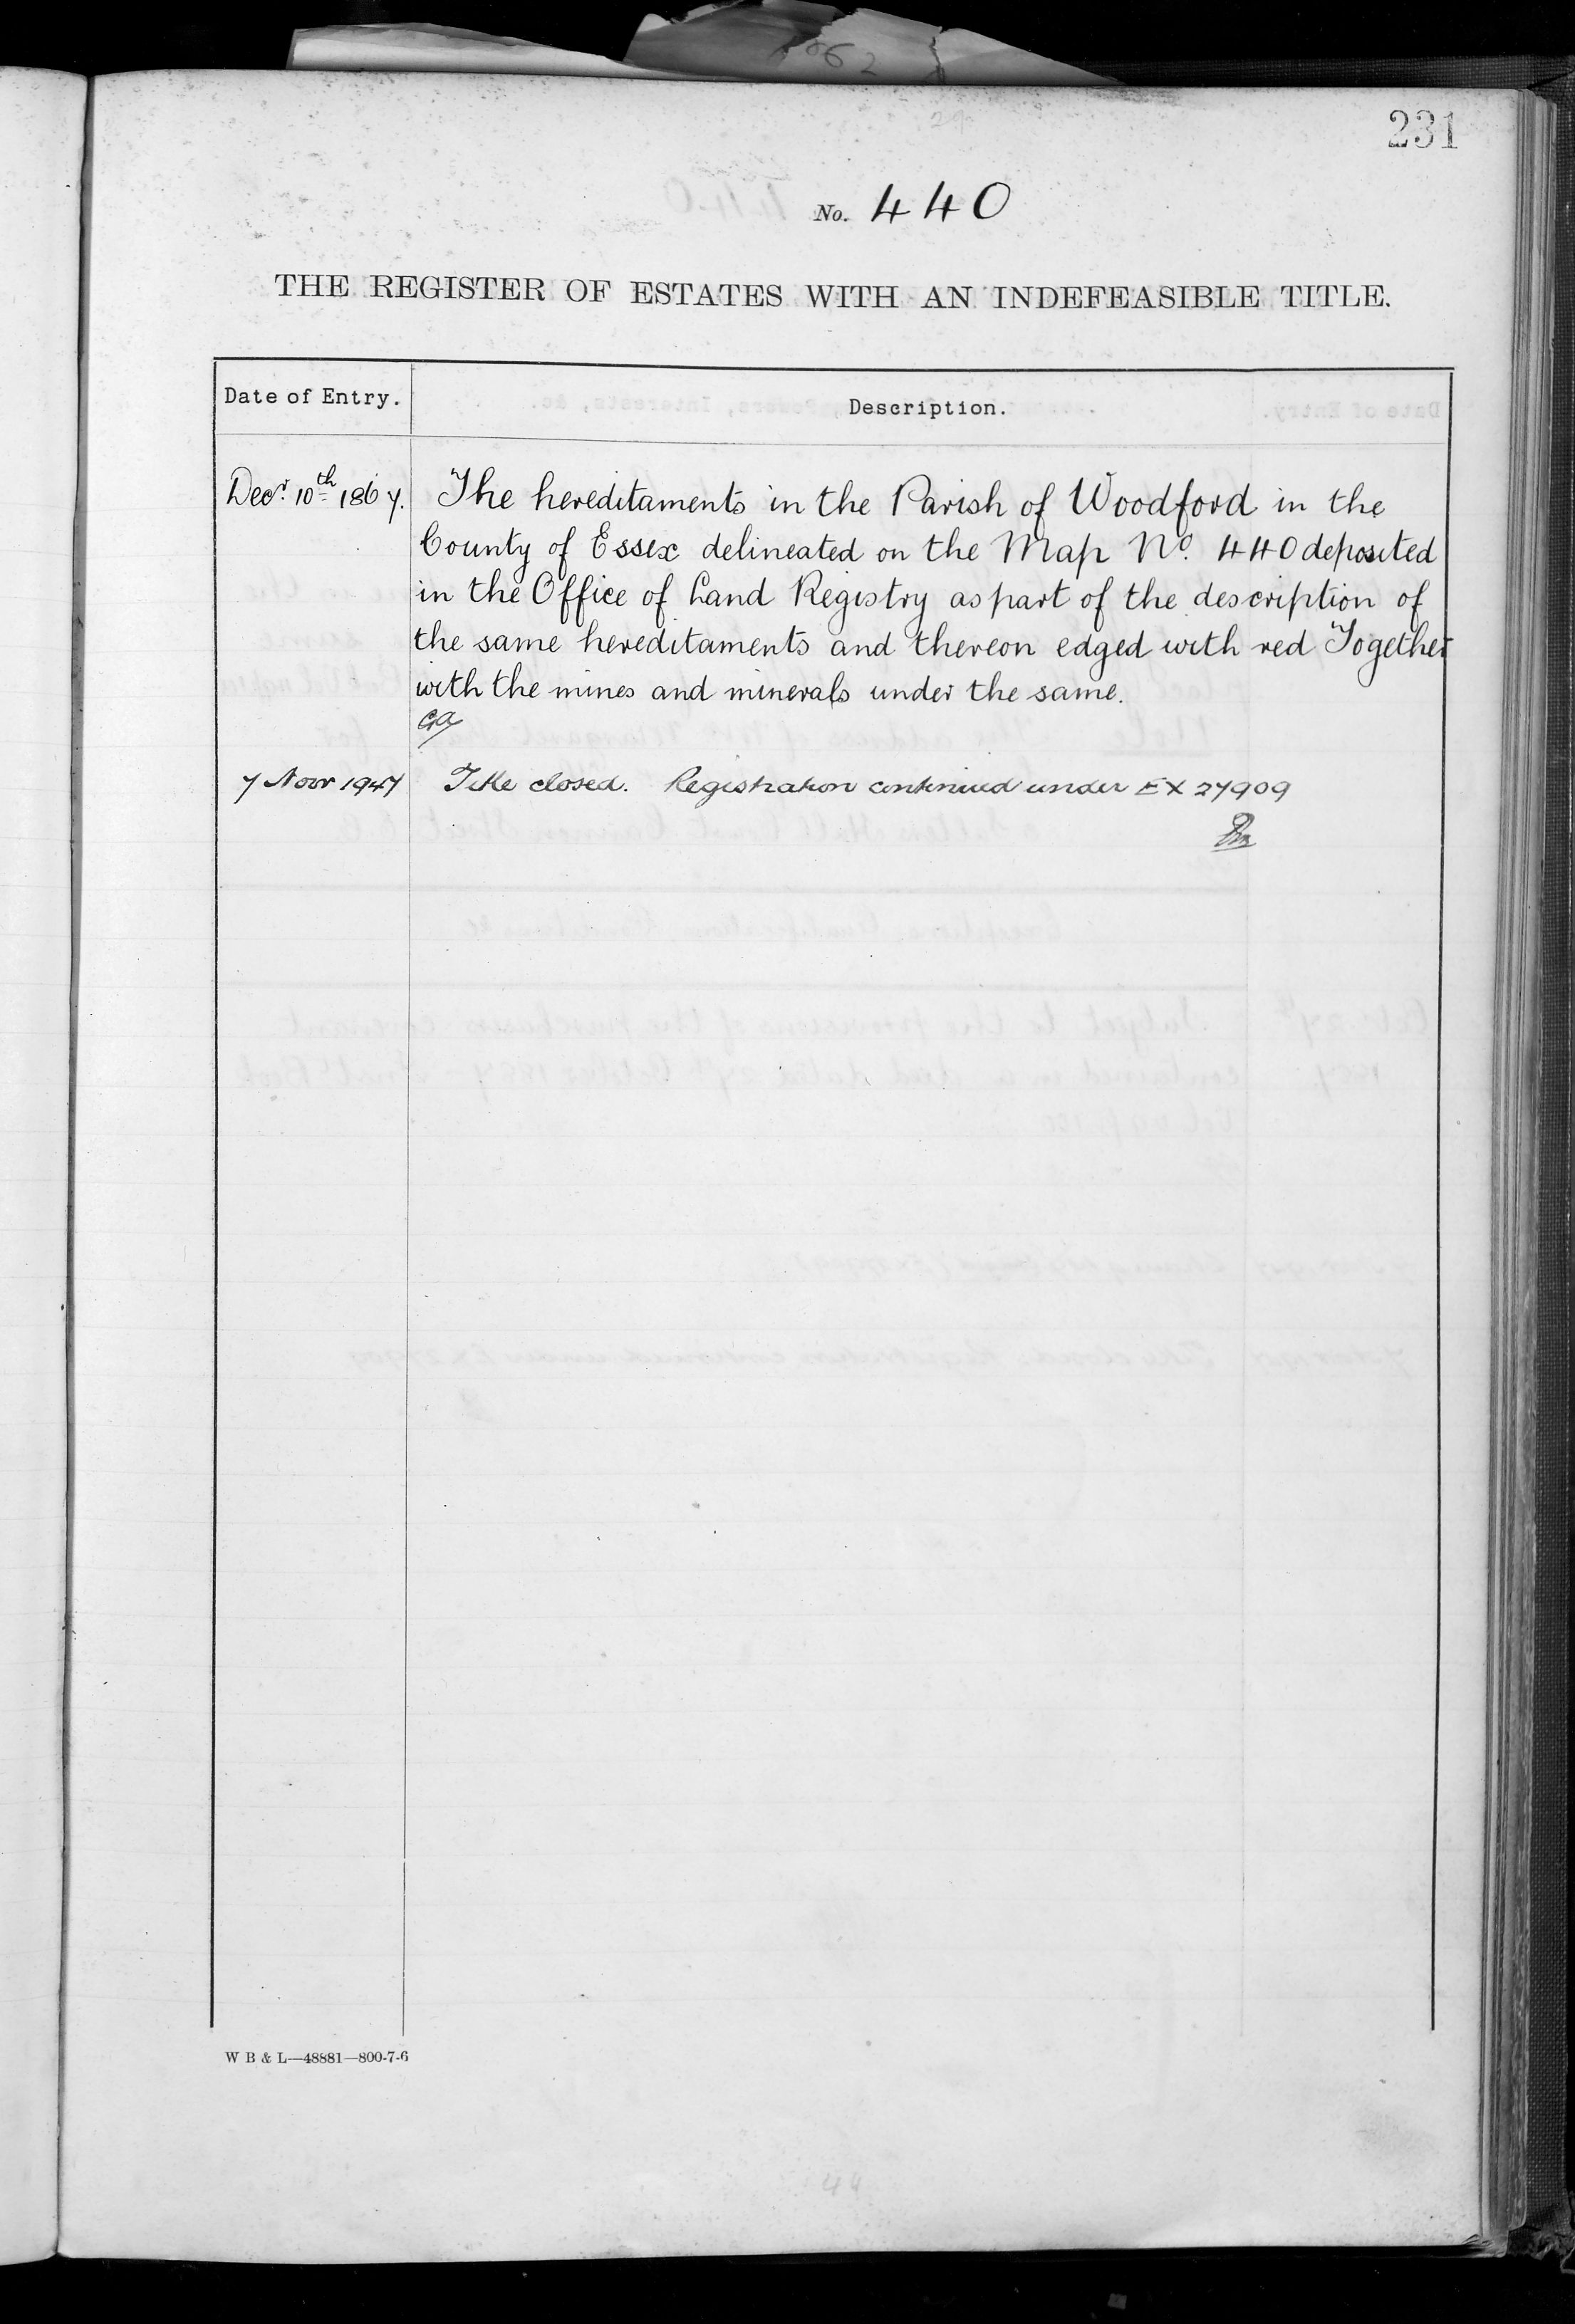 231
No. 440
THE REGISTER OF ESTATES WITH AN INDEFEASIBLE TITLE.
Date of Entry. Description.
Decr. 10th 1867. The hereditaments in the Parish of Woodford in the
County of Essex delineated on the Map No. 440 deposited
in the Office of Land Registry as part of the description of
the same hereditaments and thereon edged with red Together
with the mines and minerals under the same.
7 Novr 1947 Title closed. Registration continued under EX 27909
W B & L—48881—800-7-6